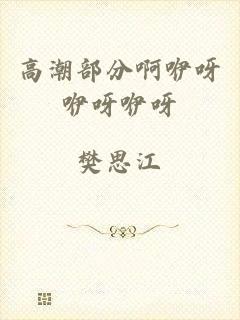 高潮部分啊咿呀
咿呀咿呀
樊思江